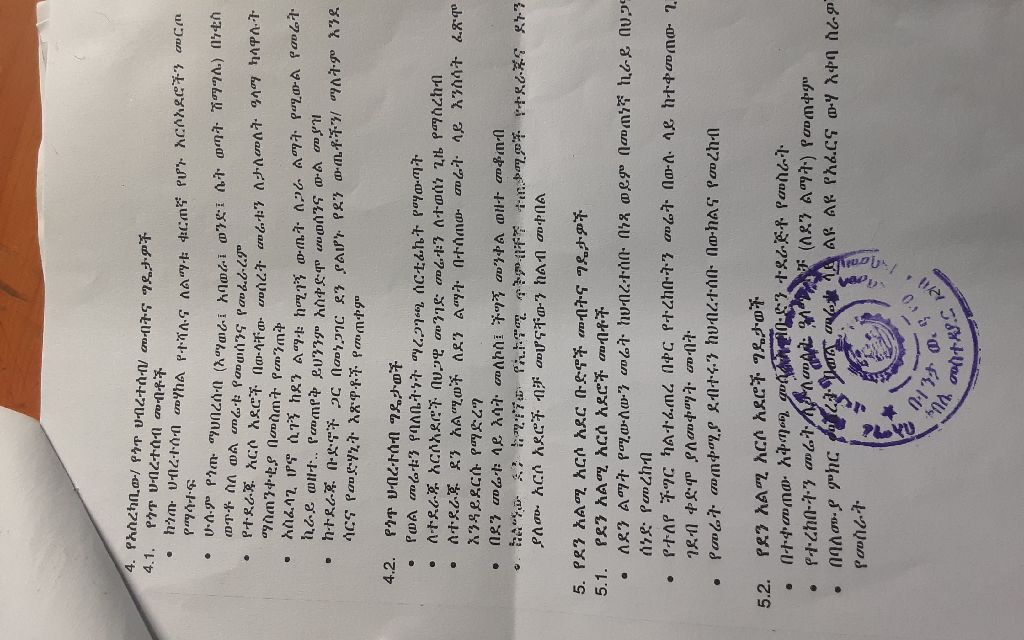 4. የአከራካቢው/ የጎጥ ህብረተሰብ/ መብትና ግዴታዎች
4.1. የጎጥ ህብረተሰብ መብቶች
• ከጎጡ ህብረተሰብ መሃከል የተሻሉና ለልማቱ ቁርጠኛ የሆኑ አርሶአደሮችን መርጦ
ማሳተፍ
• ሁሉም የጎጡ ማህበረሰብ (እማወራ፣ አባወራ፣ ወንድ፣ ሴት ወጣት ሽማግሌ) በነቂስ
ወጥቶ ስለ ወል መሬቱ የመወሰንና የመፈራረም
• የተደራጁ አርሶ አደሮች በውላቸው መሰረት መሬቱን ለታለመለት ዓላማ ካላዋሉት
ማስጠንቀቂያ በመስጠት የመንጠቅ
• አስፈላጊ ሆኖ ሲገኝ ከደን ልማቱ ከሚገኝ ውጤት ለጋራ ልማት የሚውል የመሬት
ኪራይ ወዘተ.. የመጠየቅ ይህንንም አስቀድሞ መወሰንና ውል መያዝ
• ከተደራጁ ቡድኖች ጋር በመነጋገር ደን ያልሆኑ የደን ውጤቶችን/ ማለትም እንደ
ሳርና የመድሃኒት እጽዋቶች የመጠቀም
4.2. የጎጥ ህብረተሰብ ግዴታወች
• የወል መሬቱን የባለቤትነት ማረጋገጫ ሰርቲፊኬት የማውጣት
• ለተደራጁ አርሶአደሮች በህጋዊ መንገድ መሬቱን ለተወሰነ ጊዜ የማስረከብ
• ለተደራጁ ደን አልሚወች ለደን ልማት በተሰጠው መሬት ላይ እንስሳት ፈጽሞ
እንዳይደርሱ የማድረግ
• በደን መሬቱ ላይ እሳት መለኮስ፣ ችግኝ መንቀል ወዘተ መቆጠብ
ያለሙ አርሶ አደሮች ብቻ መሆናቸውን ከልብ መቀበል
5. የደን አልሚ አርሶ አደር ቡድኖች መብትና ግዴታዎች
5.1. የደን አልሚ አርሶ አደሮች መብቶች
• ለደን ልማት የሚውለውን መሬት ከህብረተሰቡ በነጻ ወይም በመጠነኛ ኪራይ በህጋዊ
ሰነድ የመረከብ
• የተለየ ችግር ካልተፈጠረ በቀር የተረከቡትን መሬት በውሉ ላይ ከተቀመጠው ጊ
ገደብ ቀድሞ ያለመቀማት መብት
• የመሬት መጠቀሚያ ደብተሩን ከህብረተሰቡ በውክልና የመረከብ
5.2. የደን አልሚ አርሶ አደሮች ግዴታወች
• በተቀመጠው አቅጣጫ መሰረት በቡድን ተደራጅቶ የመስራት
• የተረከቡትን መሬት ለታለመለት ዓላማ ብቻ (ለደን ልማት) የመጠቀም
• በባለሙያ ምክር መሰረት በወል መሬቱ ላይ ልዩ ልዩ የአፈርና ውሃ እቀባ ስራዎ
የመስራት